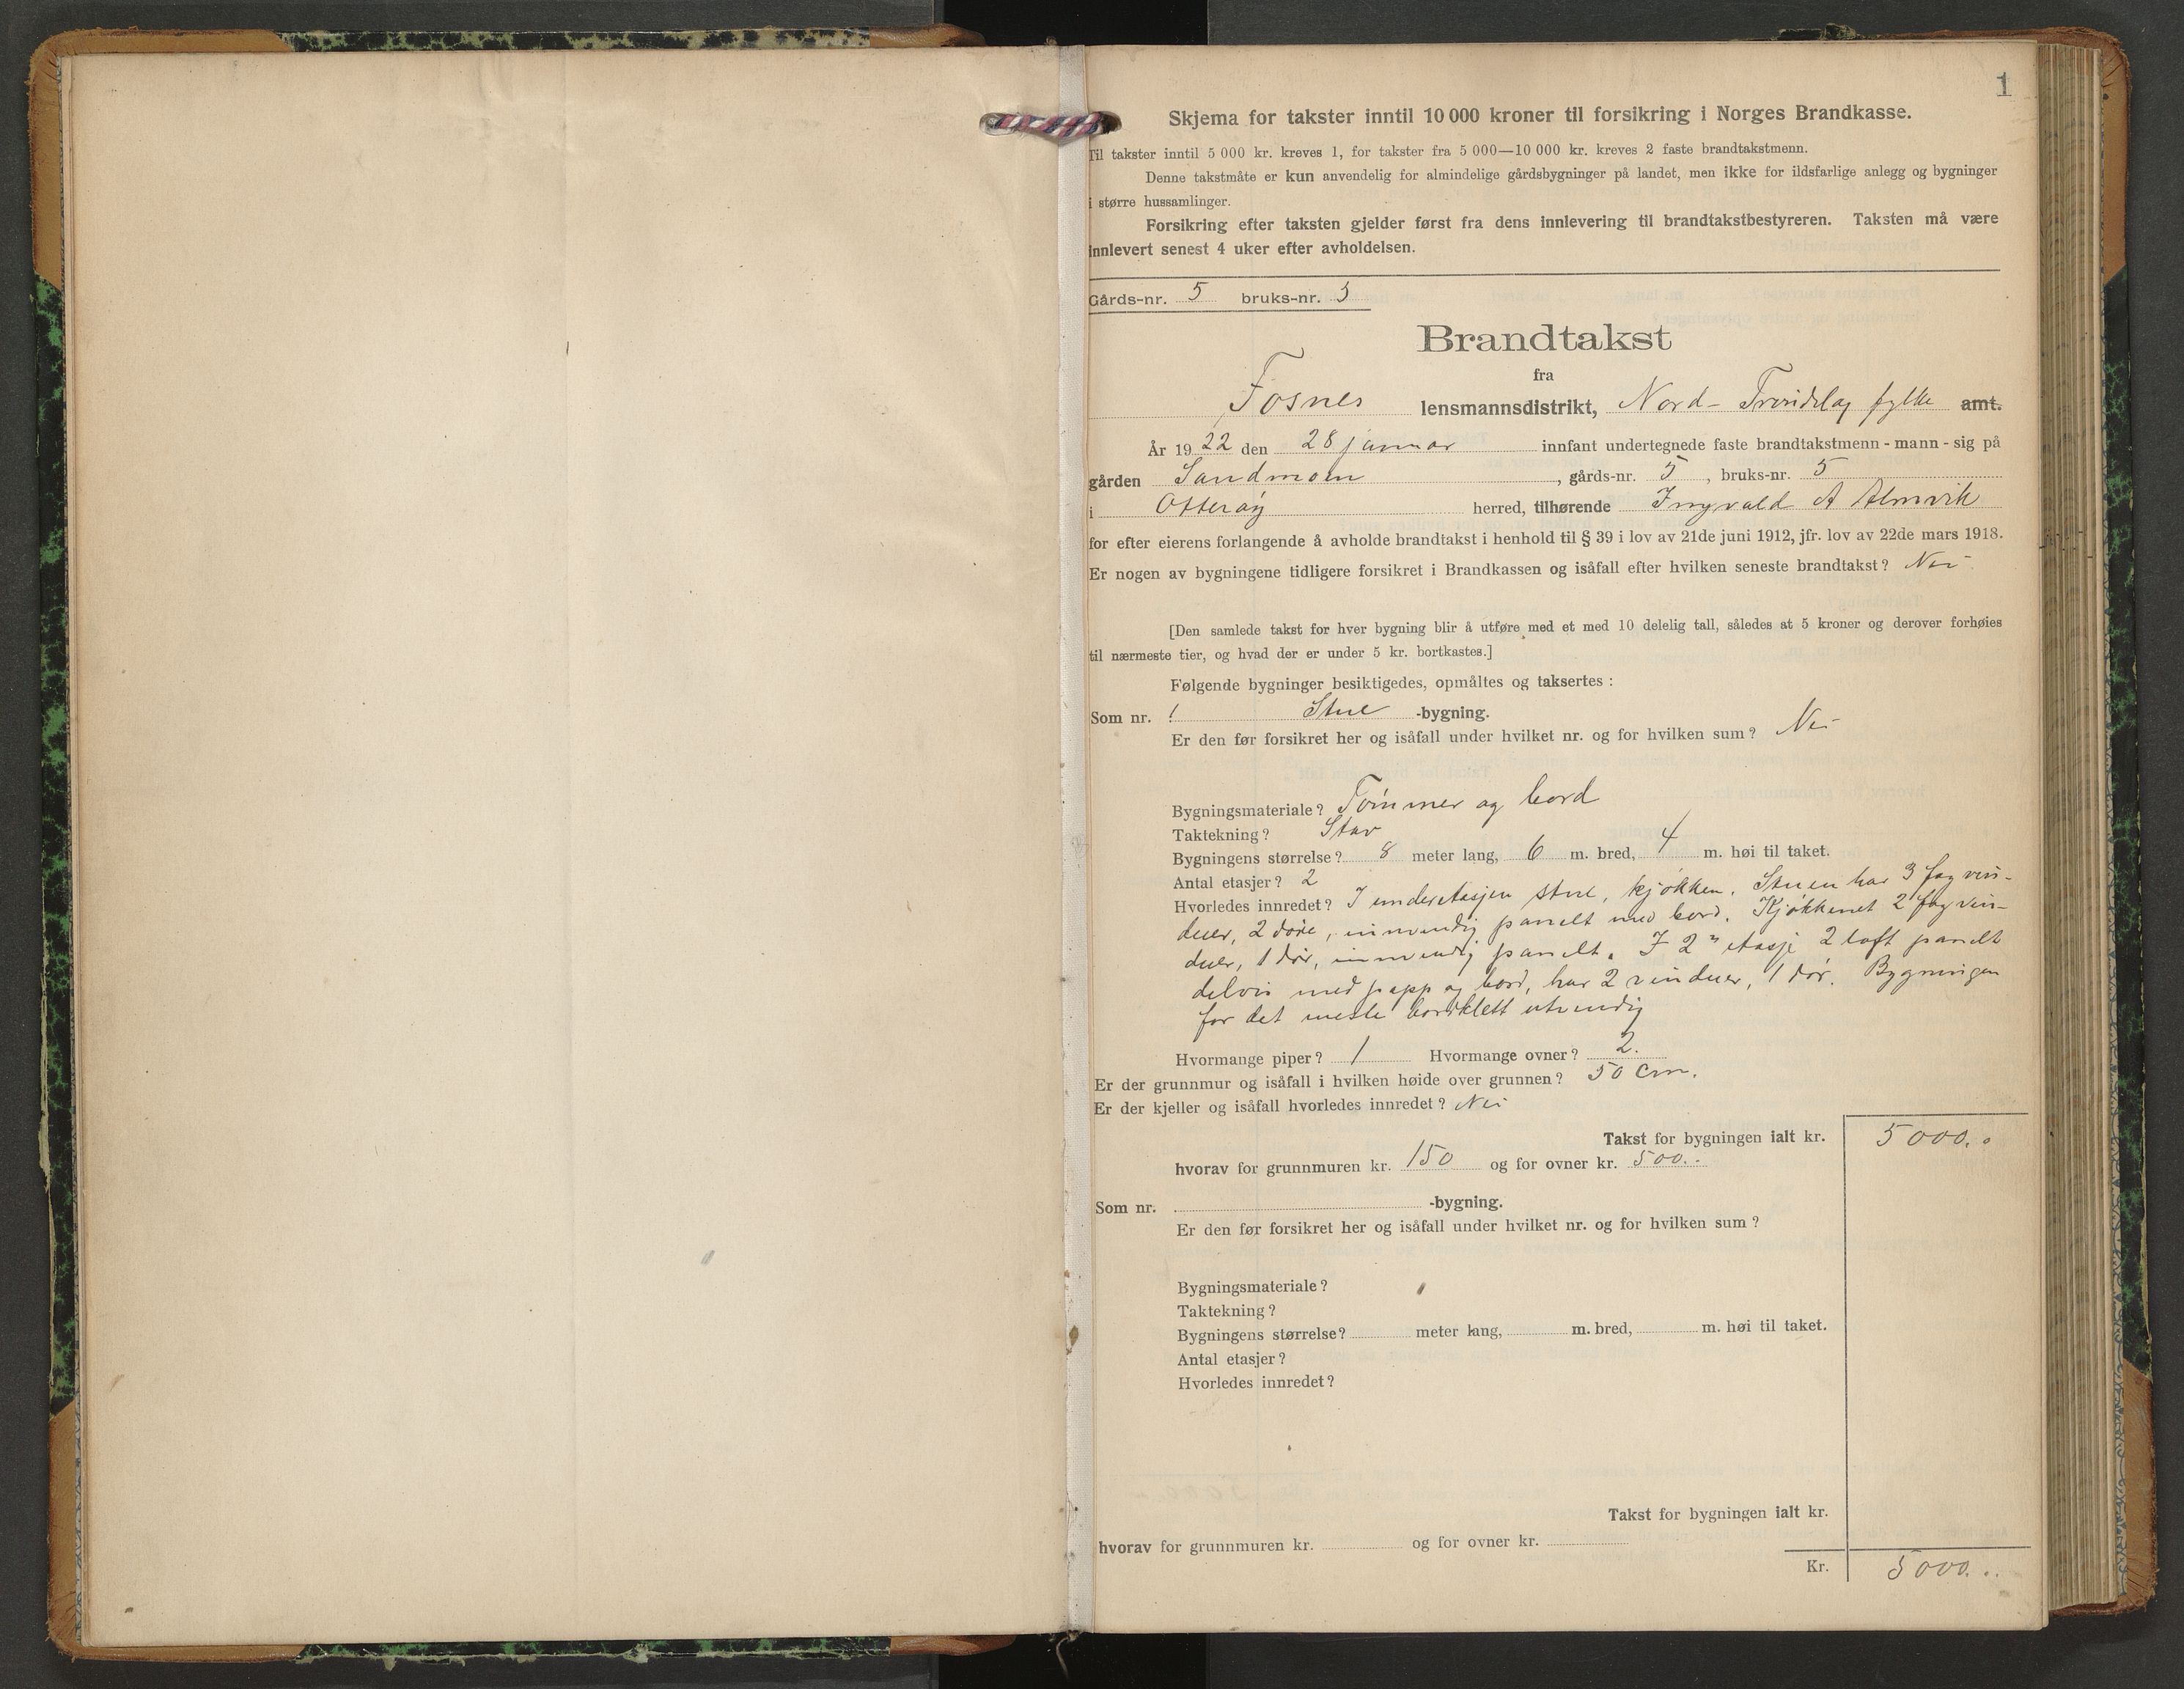 1
Skjema for takster inntil 10 000 kroner til forsikring i Norges Brandkasse.
Til takster inntil 5 000 kr. kreves 1, for takster fra 5 000—10 000 kr. kreves 2 faste brandtakstmenn.
Denne takstmåte er kun anvendelig for almindelige gårdsbygninger på landet, men ikke for ildsfarlige anlegg og bygninger
i større hussamlinger.
Forsikring efter taksten gjelder først fra dens innlevering til brandtakstbestyreren. Taksten må være
innlevert senest 4 uker efter avholdelsen.
Gårds-nr. 5 bruks-nr. 5
Brandtakst
fra
Fosnes lensmannsdistrikt, Nord-Trøndelag fylke amt.
År 1922 den 28 januar innfant undertegnede faste brandtakstmenn - mann - sig på
gården Sandmoen, gårds-nr. 5, bruks-nr. 5
i Otterøy herred, tilhørende Ingvald A Almvik
for efter eierens forlangende å avholde brandtakst i henhold til § 39 i lov av 21de juni 1912, jfr. lov av 22de mars 1918.
Er nogen av bygningene tidligere forsikret i Brandkassen og isåfall efter hvilken seneste brandtakst? Nei
[Den samlede takst for hver bygning blir å utføre med et med 10 delelig tall, således at 5 kroner og derover forhøies
til nærmeste tier, og hvad der er under 5 kr. bortkastes.]
Følgende bygninger besiktigedes, opmåltes og taksertes :
Som nr. 1 Stue -bygning.
Er den før forsikret her og isåfall under hvilket nr. og for hvilken sum? Nei
Bygningsmateriale? Tømmer og bord
Taktekning? Stav
Bygningens størrelse? 8 meter lang, 6 m. bred, 4 m. høi til taket.
Antal etasjer? 2
Hvorledes innredet? I underetasjen stue, kjøkken. Stuen har 3 fag vin-
duer, 2 døre, innvendig panelt med bord. Kjøkkenet 2 fag vin-
duer, 1 dør, innvendig panelt. I 2n etasje 2 loft panelt
delvis med papp og bord, har 2 vinduer, 1 dør. Bygningen
for det meste bordklett utvendig
Hvormange piper? 1 Hvormange ovner? 2.
Er der grunnmur og isåfall i hvilken høide over grunnen? 50 cm.
Er der kjeller og isåfall hvorledes innredet? Nei
Takst for bygningen ialt kr. 5000..
hvorav for grunnmuren kr. 150 og for ovner kr. 500..
Som nr. -bygning.
Er den før forsikret her og isåfall under hvilket nr. og for hvilken sum?
Bygningsmateriale?
Taktekning?
Bygningens størrelse? meter lang, m. bred, m. høi til taket.
Antal etasjer?
Hvorledes innredet?
Takst for bygningen ialt kr.
hvorav for grunnmuren kr. og for ovner kr.
Kr. 5000..